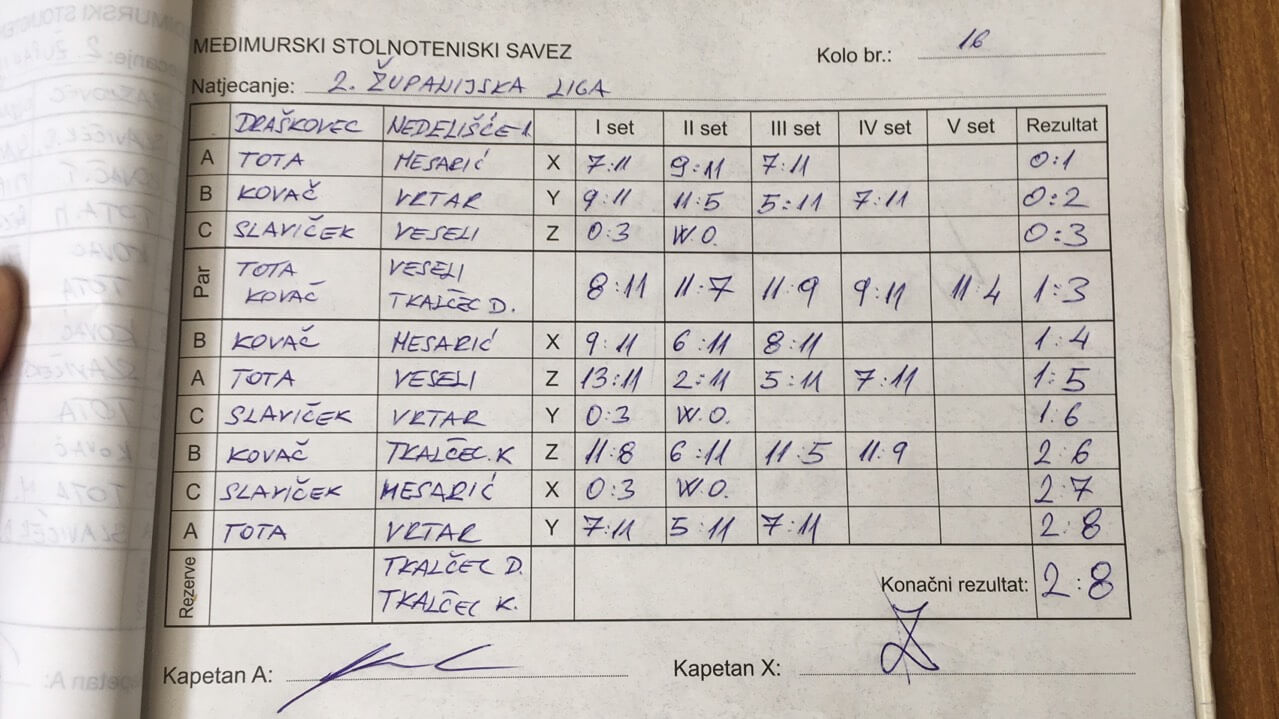 MEĐIMURSKI STOLNOTENISKI SAVEZ
Kolo br.: 16
Natjecanje: 2. ŽUPANIJSKA LIGA
DRAŠKOVEC NEDELIŠĆE-1 I set II set III set IV set V set Rezultat
A TOTA MESARIĆ X 7:11 9:11 7:11 0:1
B KOVAČ VRTAR Y 9:11 11:5 5:11 7:11 0:2
C SLAVIČEK VESELI Z 0:3 W.O. 0:3
Par TOTA KOVAČ VESELI TKALČEC D. 8:11 11:7 11:9 9:11 11:4 1:3
B KOVAČ MESARIĆ X 9:11 6:11 8:11 1:4
A TOTA VESELI Z 13:11 2:11 5:11 7:11 1:5
C SLAVIČEK VRTAR Y 0:3 W.O. 1:6
B KOVAČ TKALČEC.K Z 11:8 6:11 11:5 11:9 2:6
C SLAVIČEK MESARIĆ X 0:3 W.O. 2:7
A TOTA VRTAR Y 7:11 5:11 7:11 2:8
Rezerve TKALČEC D. TKALČEC K.
Konačni rezultat: 2:8
Kapetan A:
Kapetan X: